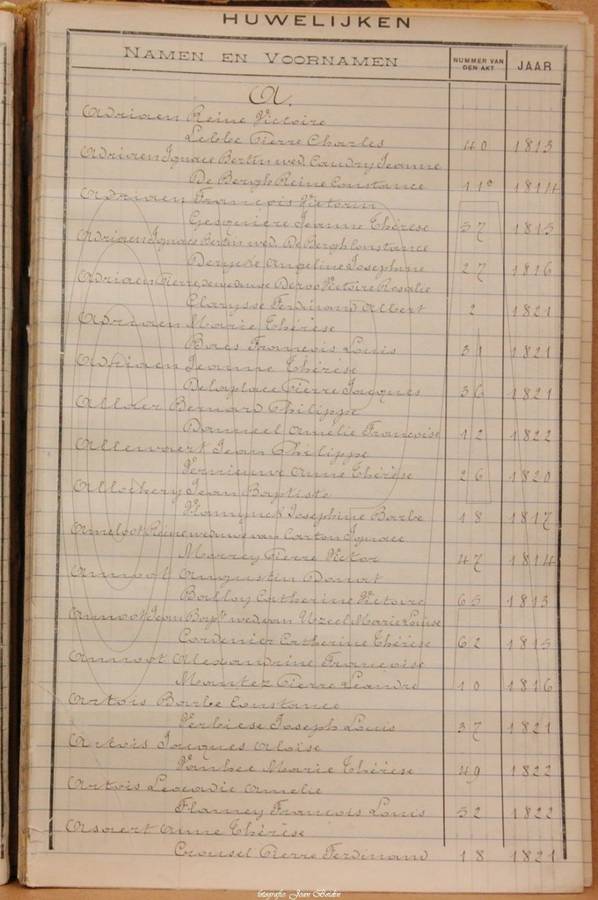 HUWELIJKEN
NAMEN EN VOORNAMEN
NUMMER VAN DEN AKT
JAAR
A.
Adriaen Reine Victoire
Lebbe Pierre Charles 40 1813
Adriaen Ignace Bertin wed. Caudry Jeanne
De Bergh Reine Constance 11° 1814
Adriaen François Victorin
Gesquiere Jeanne Thérèse 37 1815
Adriaen Ignace Bertin wed. De Bergh Constance
Angeline Josephine 27 1816
Adriaen Pierre weduwe Deroo Victoire Rosalie
Clarysse Ferdinand Albert 2 1821
Adriaen Marie Thérèse
Baes François Louis 31 1821
Adriaen Jeanne Thérèse
Delaplace Pierre Jacques 36 1821
Bernard Philippe
Danneel Amelie Françoise 12 1822
Allewaert Jean Philippe
Anne Thérèse 26 1820
Jean Baptiste
Josephine Barbe 18 1817
Ameloot Reine weduwe van Carton Ignace
Pierre Victor 47 1814
Annoot Augustin Donat
Catherine Victoire 65 1813
Annoot Jean Bapte wed. van Uzeel Marie Louise
Cordenier Catherine Thérèse 62 1815
Annoot Alexandrine Françoise
Pierre Leandre 10 1816
Artois Barbe Constance
Verbiese Joseph Louis 37 1821
Artois Jacques Aloïse
Vanhee Marie Thérèse 49 1822
Artois Leocadie Amelie
François Louis 52 1822
Asaert Anne Thérèse
Crousel Pierre Ferdinand 18 1821
fotografie: Joan Boidin